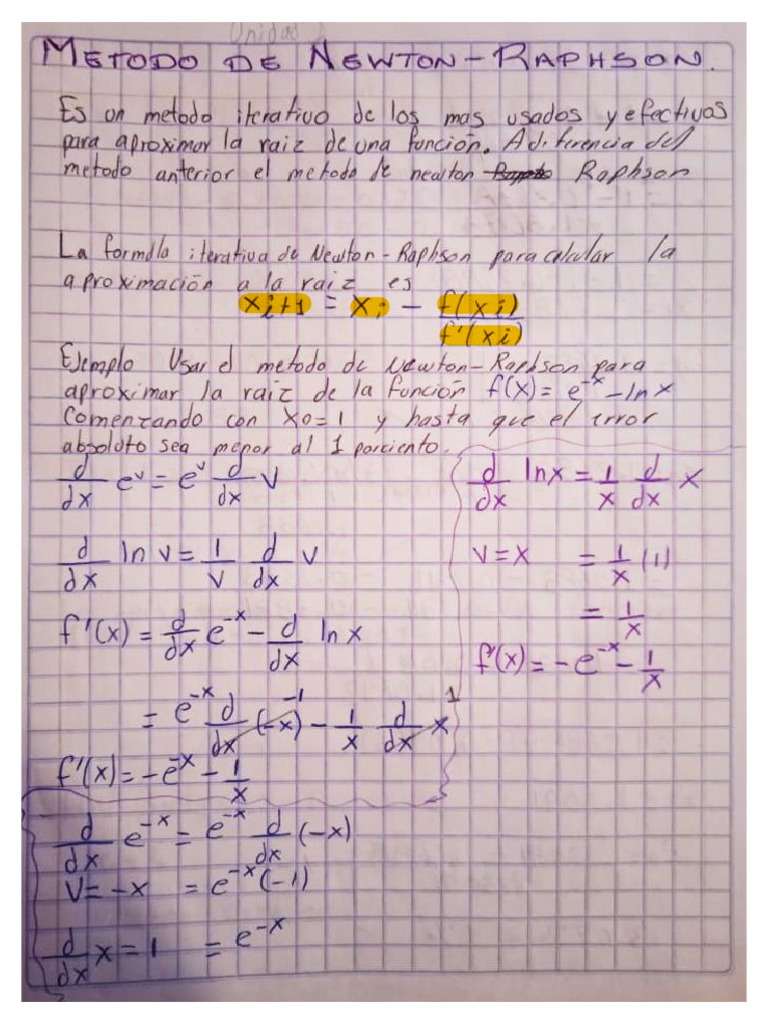 Unidad
METODO DE NEWTON-RAPHSON.
Es un metodo iterativo de los mas usados y efectivos
para aproximar la raiz de una función. A diferencia del
metodo anterior el metodo de newton Raphson
La formula iterativa de Newton-Raphson para calcular la
aproximación a la raiz es
xi+1 = xi - f(xi)/f'(xi)
Ejemplo Usar el metodo de Newton-Raphson para
aproximar la raiz de la función f(x)= e^-x - ln x
Comenzando con X0=1 y hasta que el error
absoluto sea menor al 1 porciento.
d/dx e^v = e^v d/dx v
d/dx ln v = 1/v d/dx v
f'(x) = d/dx e^-x - d/dx ln x
= e^-x d/dx (-x) -1 - 1/x d/dx x 1
f'(x) = -e^-x - 1/x
d/dx ln x = 1/x d/dx x
v=x = 1/x (1)
= 1/x
f'(x) = -e^-x - 1/x
d/dx e^-x = e^-x d/dx (-x)
v=-x = e^-x (-1)
d/dx x = 1 = e^-x